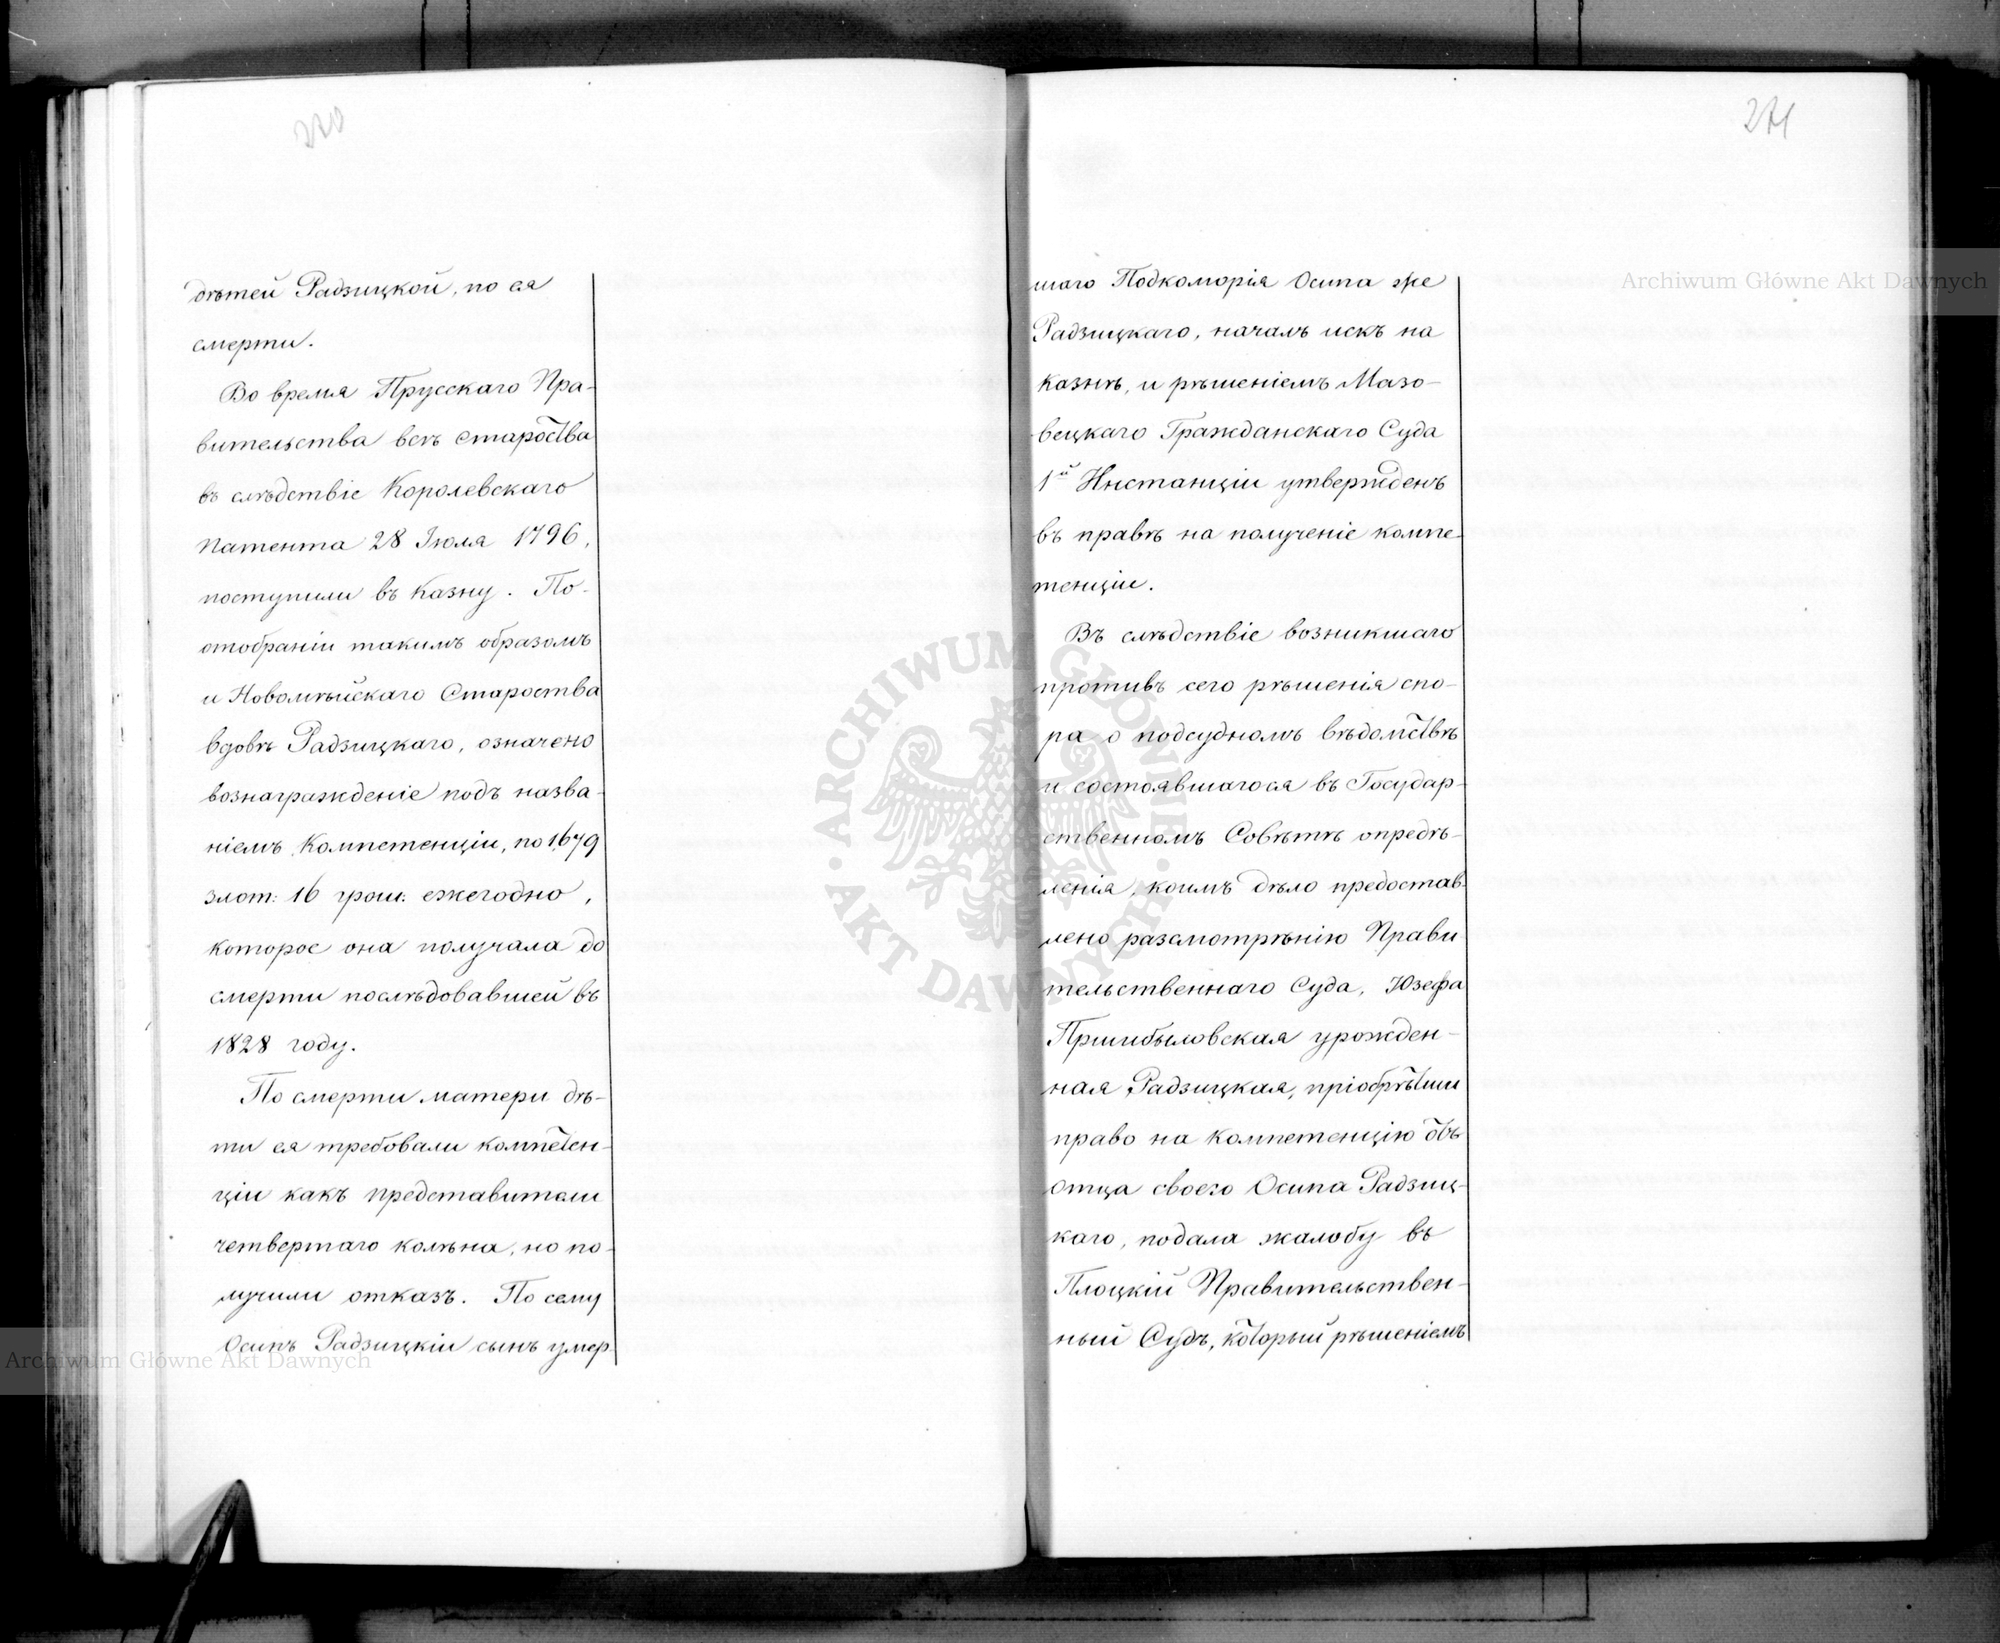 270
дѣтей Радзицкой, по ея
смерти.
Во время Прусскаго Пра-
вительства всѣ Староства
въ слѣдствіе Королевскаго
Патента 28 Іюля 1796,
поступили въ Казну. По-
отобраніи такимъ образомъ
и Новомѣйскаго Староства
вдовѣ Радзицкаго, означено
вознагражденіе подъ назва-
ніемъ Компетенціи, по 1,679
злот: 16 грош: ежегодно,
которое она получала до
смерти послѣдовавшей въ
1828 году.
По смерти матери дѣ-
ти ея требовали компетен-
ціи какъ представители
четвертаго колѣна, но по-
лучили отказъ. По сему
Осипъ Радзицкій сынъ умер-
271
шаго Подкоморія Осипа же
Радзицкаго, началъ искъ на
казнѣ, и рѣшеніемъ Мазо-
вецкаго Гражданскаго Суда
1й Инстанціи утвержденъ
въ правѣ на полученіе компе-
тенціи.
Въ слѣдствіе возникшаго
противъ сего рѣшенія спо-
ра о подсудномъ вѣдомствѣ
и состоявшагося въ Государ-
ственномъ Совѣтѣ опредѣ-
ленія, коимъ дѣло предостав-
лено разсмотрѣнію Прави
тельственнаго Суда, Юзефа
Пршибыловская урожден-
ная Радзицкая, пріобрѣтши
право на компетенцію отъ
отца своего Осипа Радзиц-
каго, подала жалобу въ
Плоцкій Правительствен-
ный Судъ, который рѣшеніемъ
Archiwum Główne Akt Dawnych
ARCHIWUM GŁÓWNE · AKT DAWNYCH ·
Archiwum Główne Akt Dawnych